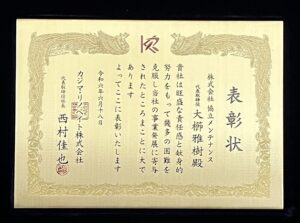 表彰状
株式会社 協立メンテナンス
代表取締役 大櫛雅樹殿
貴社は旺盛な責任感と献身的
努力をもって幾多の困難を
克服し当社の事業発展に寄与
されたところまことに大で
あります
よってここに表彰いたします
令和六年六月十八日
カジマ・リノベイト株式会社
代表取締役社長 西村佳也